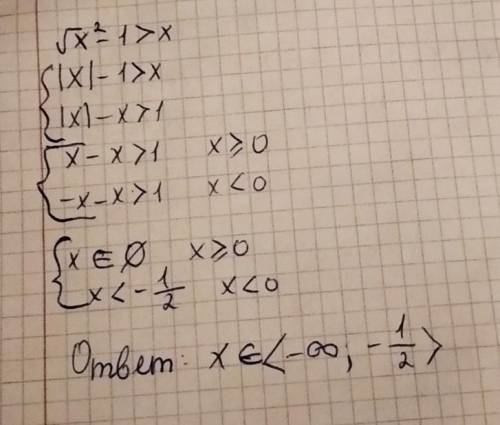 √x² - 1 > x
|x| - 1 > x
|x| - x > 1
x - x > 1 x ≥ 0
-x - x > 1 x < 0
x ∈ ∅ x ≥ 0
x < -1/2 x < 0
Ответ: x ∈ < -∞; -1/2 >